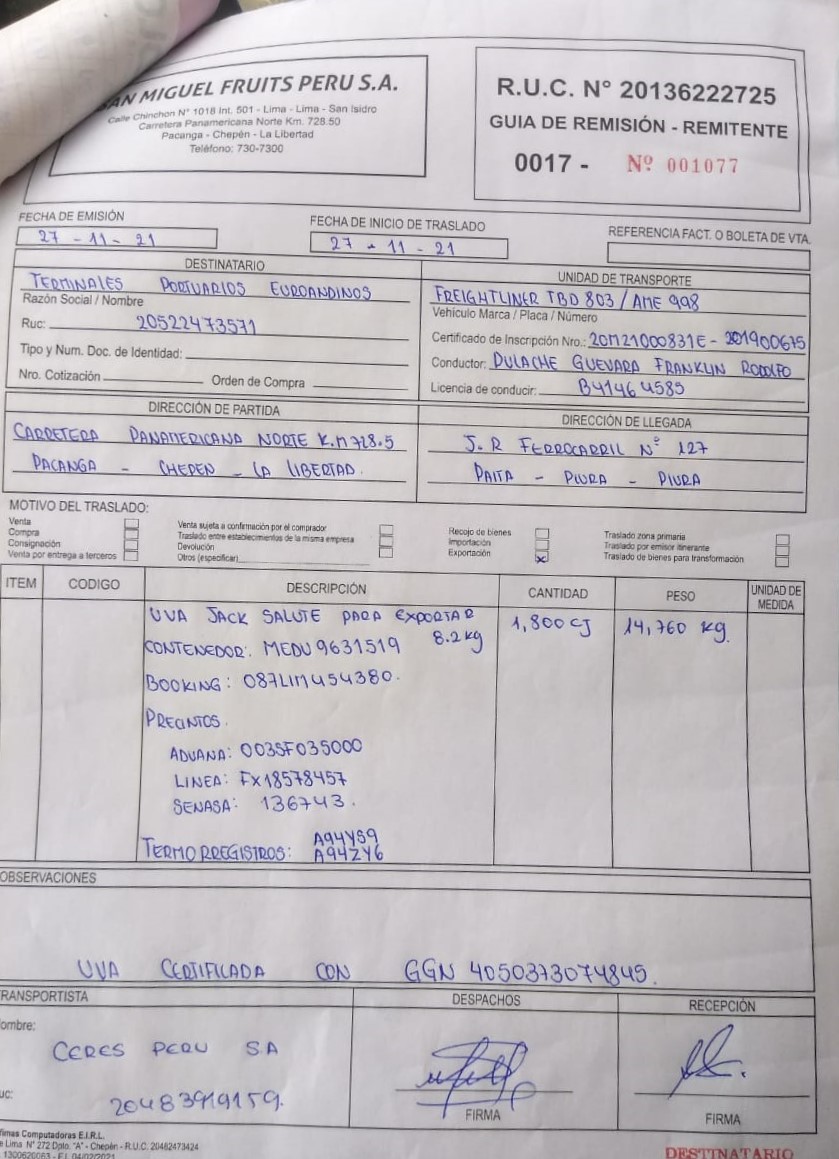 SAN MIGUEL FRUITS PERU S.A.
Calle Chinchon N° 1018 Int. 501 - Lima - Lima - San Isidro
Carretera Panamericana Norte Km. 728.50
Pacanga - Chepén - La Libertad
Teléfono: 730-7300
R.U.C. N° 20136222725
GUIA DE REMISIÓN - REMITENTE
0017 - Nº 001077
FECHA DE EMISIÓN
27 - 11 - 21
FECHA DE INICIO DE TRASLADO
27 - 11 - 21
REFERENCIA FACT. O BOLETA DE VTA.
DESTINATARIO
TERMINALES PORTUARIOS EUROANDINOS
Razón Social / Nombre
Ruc: 20522473571
Tipo y Num. Doc. de Identidad:
Nro. Cotización Orden de Compra
UNIDAD DE TRANSPORTE
FREIGHTLINER TBD 803 / AME 998
Vehículo Marca / Placa / Número
Certificado de Inscripción Nro.: 20M21000831E - 201900675
Conductor: DULACHE GUEVARA FRANKLIN RODOLFO
Licencia de conducir: B41464585
DIRECCIÓN DE PARTIDA
CARRETERA PANAMERICANA NORTE K.M 728.5
PACANGA - CHEPEN - LA LIBERTAD.
DIRECCIÓN DE LLEGADA
J.R FERROCARRIL N° 127
PAITA - PIURA - PIURA
MOTIVO DEL TRASLADO:
Venta
Compra
Consignación
Venta por entrega a terceros
Venta sujeta a confirmación por el comprador
Traslado entre establecimientos de la misma empresa
Devolución
Otros (especificar)
Recojo de bienes
Importación
Exportación x
Traslado zona primaria
Traslado por emisor itinerante
Traslado de bienes para transformación
ITEM CODIGO DESCRIPCIÓN CANTIDAD PESO UNIDAD DE MEDIDA
UVA JACK SALUTE PARA EXPORTAR 1,800 CJ 14,760 kg.
8.2 kg
CONTENEDOR: MEDU 9631519
BOOKING: 087LIM454380.
PRECINTOS.
ADUANA: 003SF035000
LINEA: FX18578457
SENASA: 136743.
TERMORREGISTROS: A94YS9
A94ZY6
OBSERVACIONES
UVA CERTIFICADA CON GGN 4050373074845.
TRANSPORTISTA
ombre:
CERES PERU S.A
uc:
20483919159.
DESPACHOS
FIRMA
RECEPCIÓN
FIRMA
fimas Computadoras E.I.R.L.
e Lima N° 272 Dpto. "A" - Chepén - R.U.C. 20482473424
1300620083 - F.I. 04/02/2021
DESTINATARIO